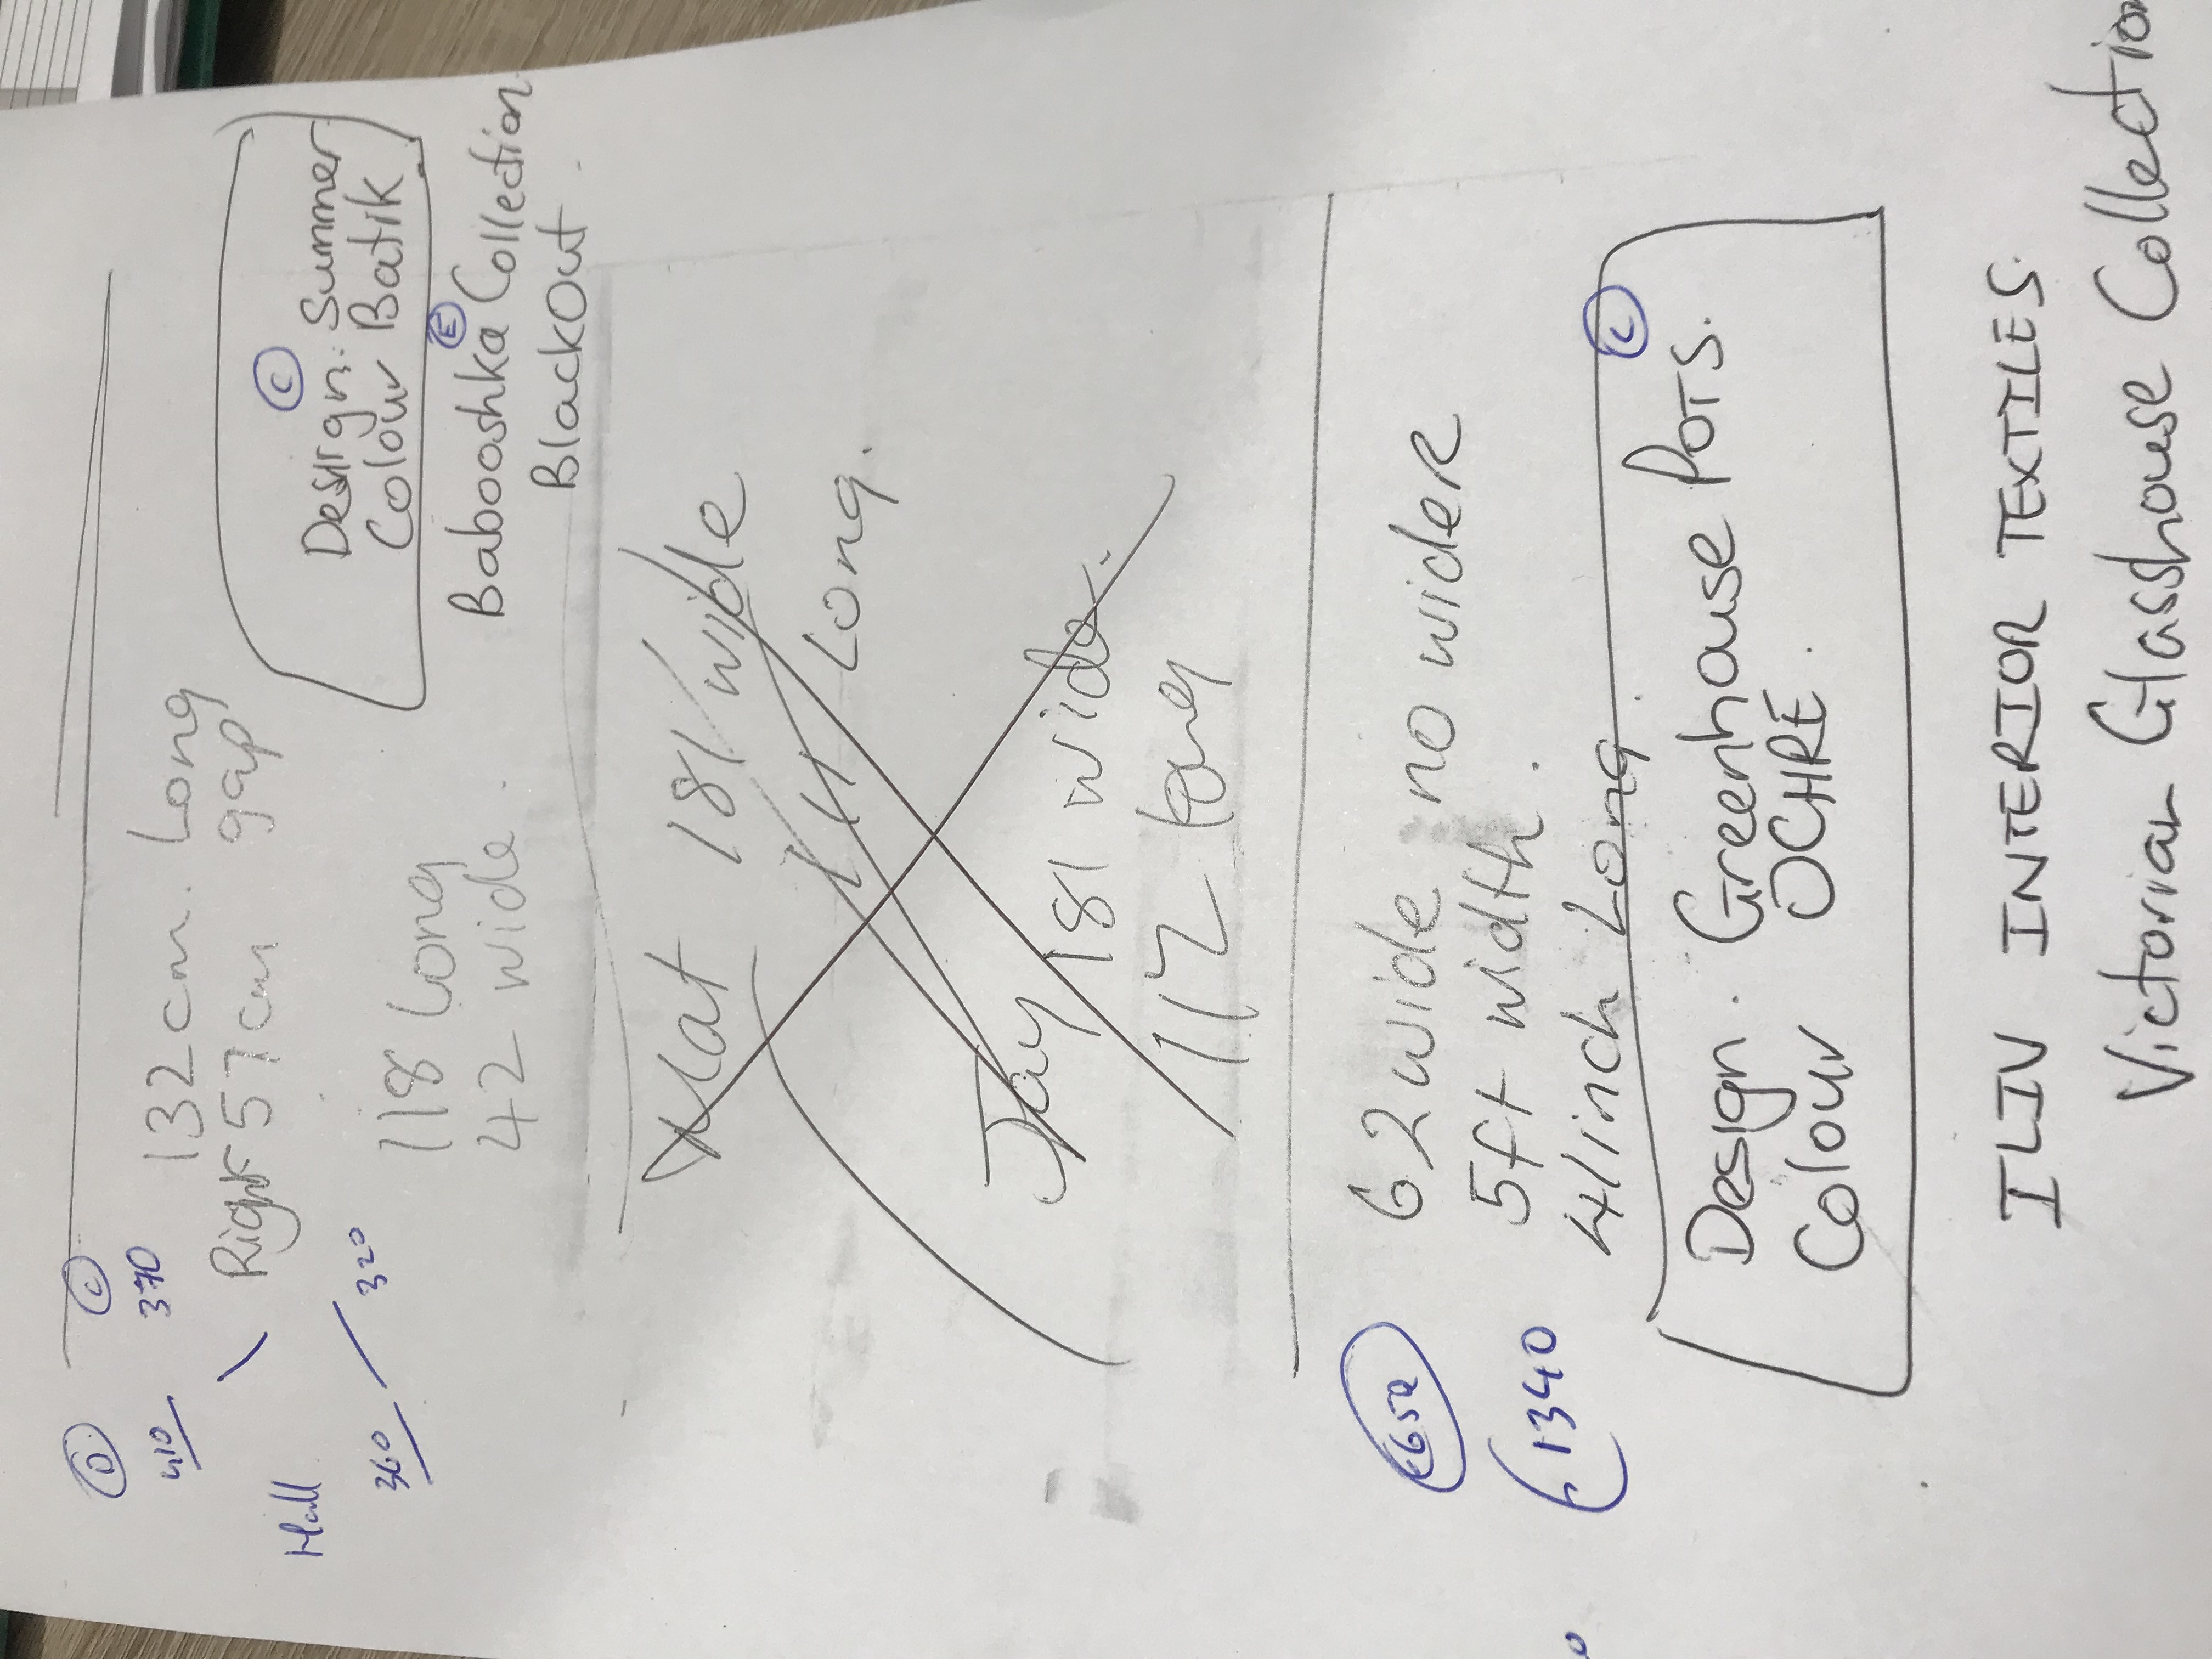 D C
410 370
132cm. Long
Right 57cm gap
Hall
360 320
118 Long
42 wide.
C
Design: Summer
Colour Batik
E
Babooshka Collection
Blackout.
181 wide
Long.
Jay 181 wide.
112 Long
62 wide no wider
5ft width.
41inch Long.
1340
C
Design. Greenhouse Pots.
Colour OCHRE.
ILIV INTERIOR TEXTILES.
Victorian Glasshouse Collection